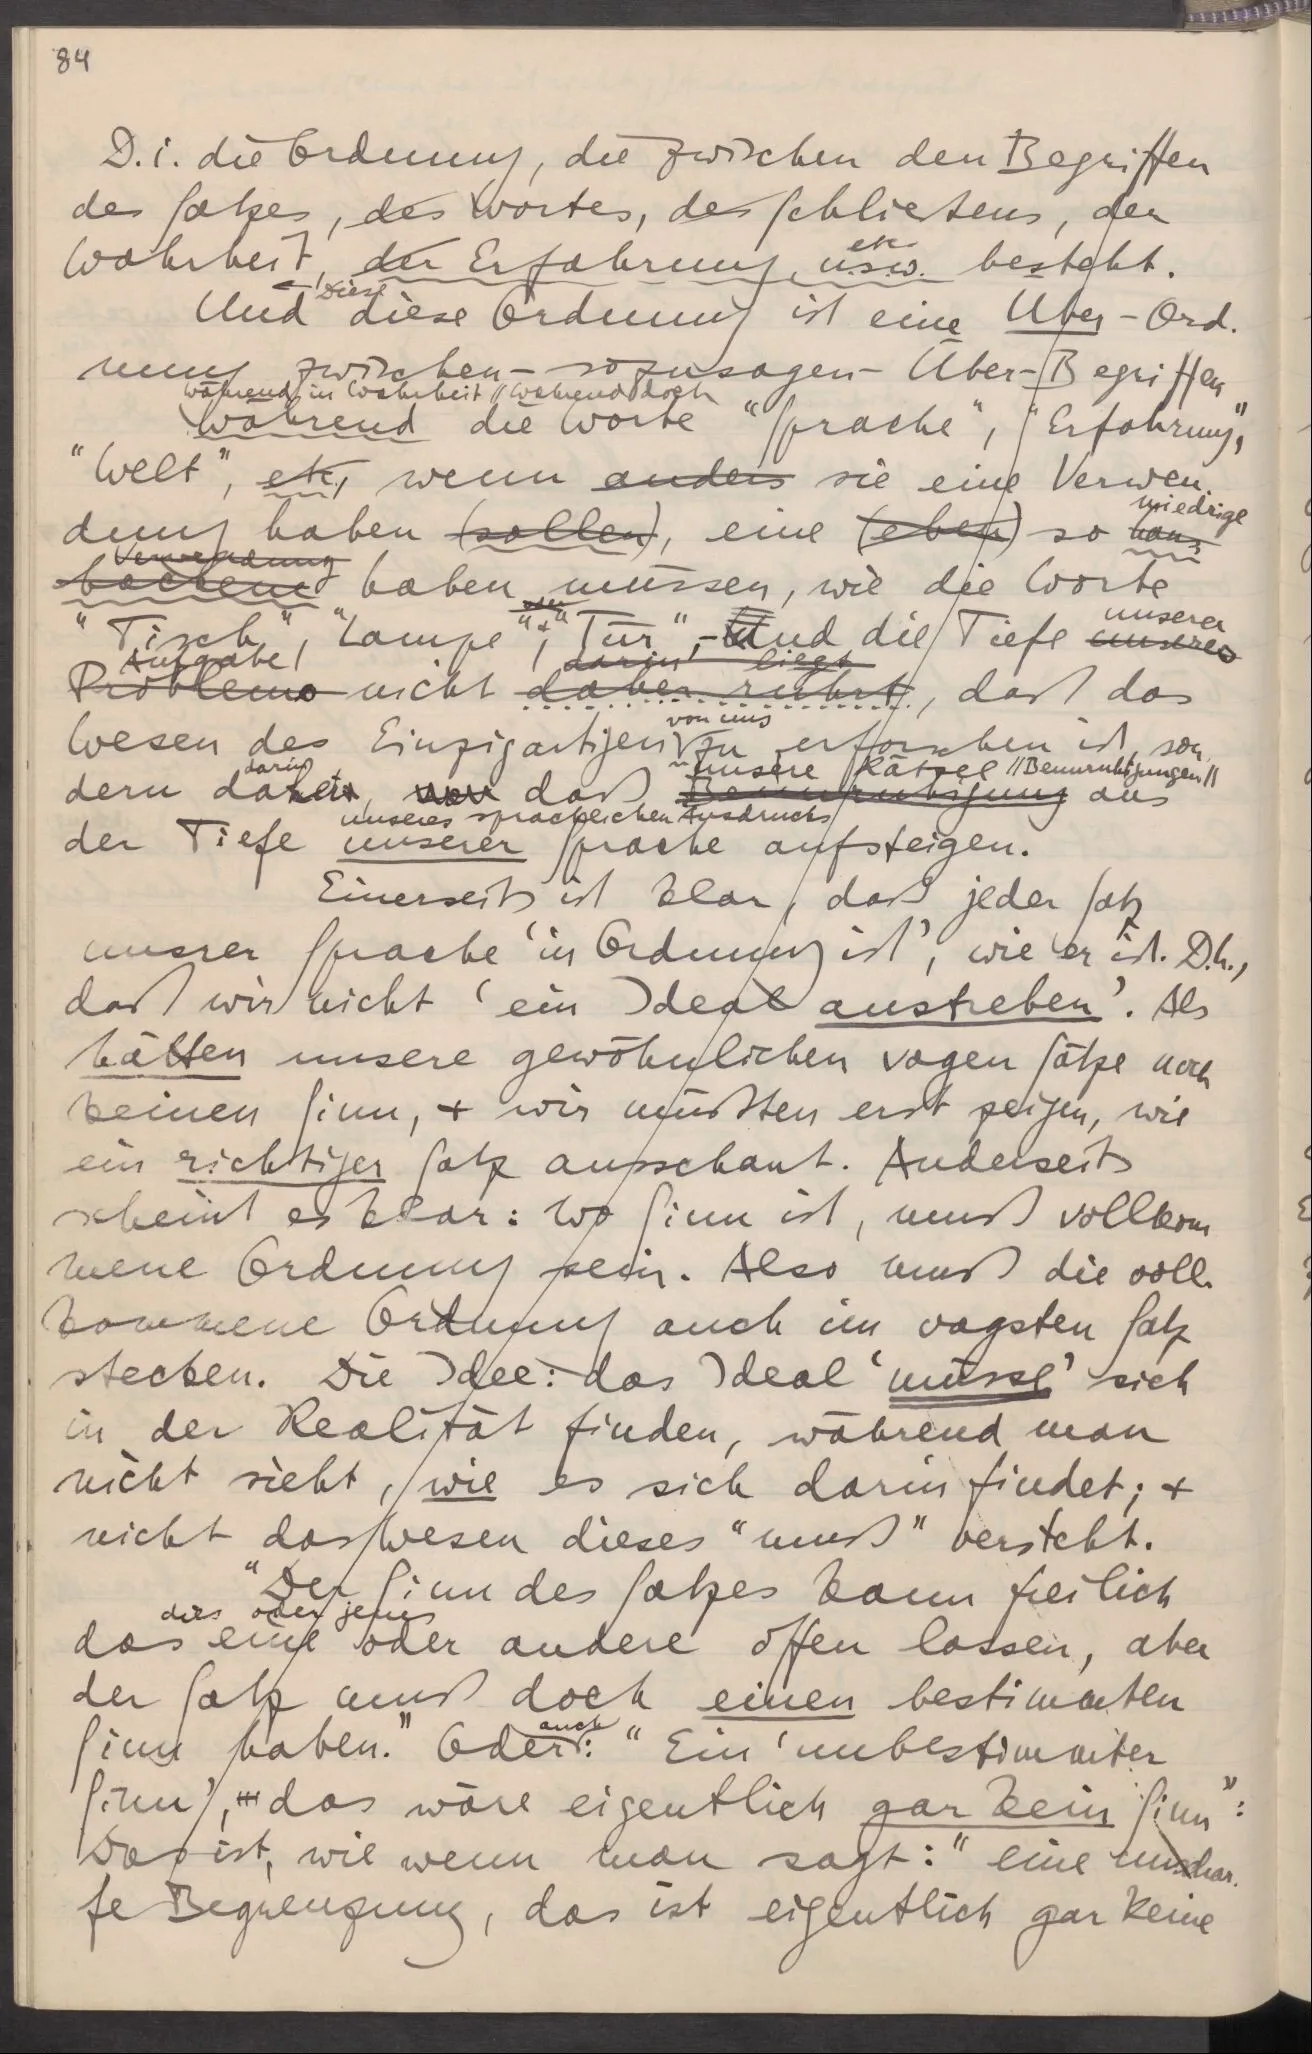 84
D. i. die Ordnung, die zwischen den Begriffen
des Satzes, des Wortes, des Schließens, der
Wahrheit, der Erfahrung, usw. besteht.
etc
Diese
Und diese Ordnung ist eine Über-Ord-
nung zwischen – sozusagen – Über-Begriffen
während in Wahrheit // während doch
während die Worte "Sprache", "Erfahrung",
"Welt", etc, wenn anders sie eine Verwen-
dung haben (sollen), eine (eben) so haus-
niedrige
Verwendung
backene haben müssen, wie die Worte
"Tisch", "Lampe", + "Tür", – Und die Tiefe unseres
unserer
Aufgabe darin liegt
Problems nicht daher rührt, daß das
von uns
Wesen des Einzigartigen zu erforschen ist, son-
darin unsere Rätsel // Beunruhigungen //
dern daher, daß Beunruhigung aus
unseres sprachlichen Ausdrucks
der Tiefe unserer Sprache aufsteigen.
Einerseits ist klar, daß jeder Satz
unsrer Sprache 'in Ordnung ist', wie er ist. D.h.,
daß wir nicht 'ein Ideal anstreben'. Als
hätten unsere gewöhnlichen vagen Sätze noch
keinen Sinn, + wir müßten erst zeigen, wie
ein richtiger Satz ausschaut. Anderseits
scheint es klar: wo Sinn ist, muß vollkom-
mene Ordnung sein. Also muß die voll-
kommene Ordnung auch im vagsten Satz
stecken. Die Idee: das Ideal 'müsse' sich
in der Realität finden, während man
nicht sieht, wie es sich darin findet; +
nicht das Wesen dieses "muß" versteht.
"Der Sinn des Satzes kann freilich
dies oder jenes
das eine oder andere offen lassen, aber
der Satz muß doch einen bestimmten
Sinn haben." Oder auch: "Ein 'unbestimmter
Sinn', – das wäre eigentlich gar kein Sinn":
Das ist, wie wenn man sagt: "eine unschar-
fe Begrenzung, das ist eigentlich gar keine